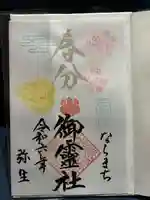 春分
ならまち
御靈社
令和六年
弥生